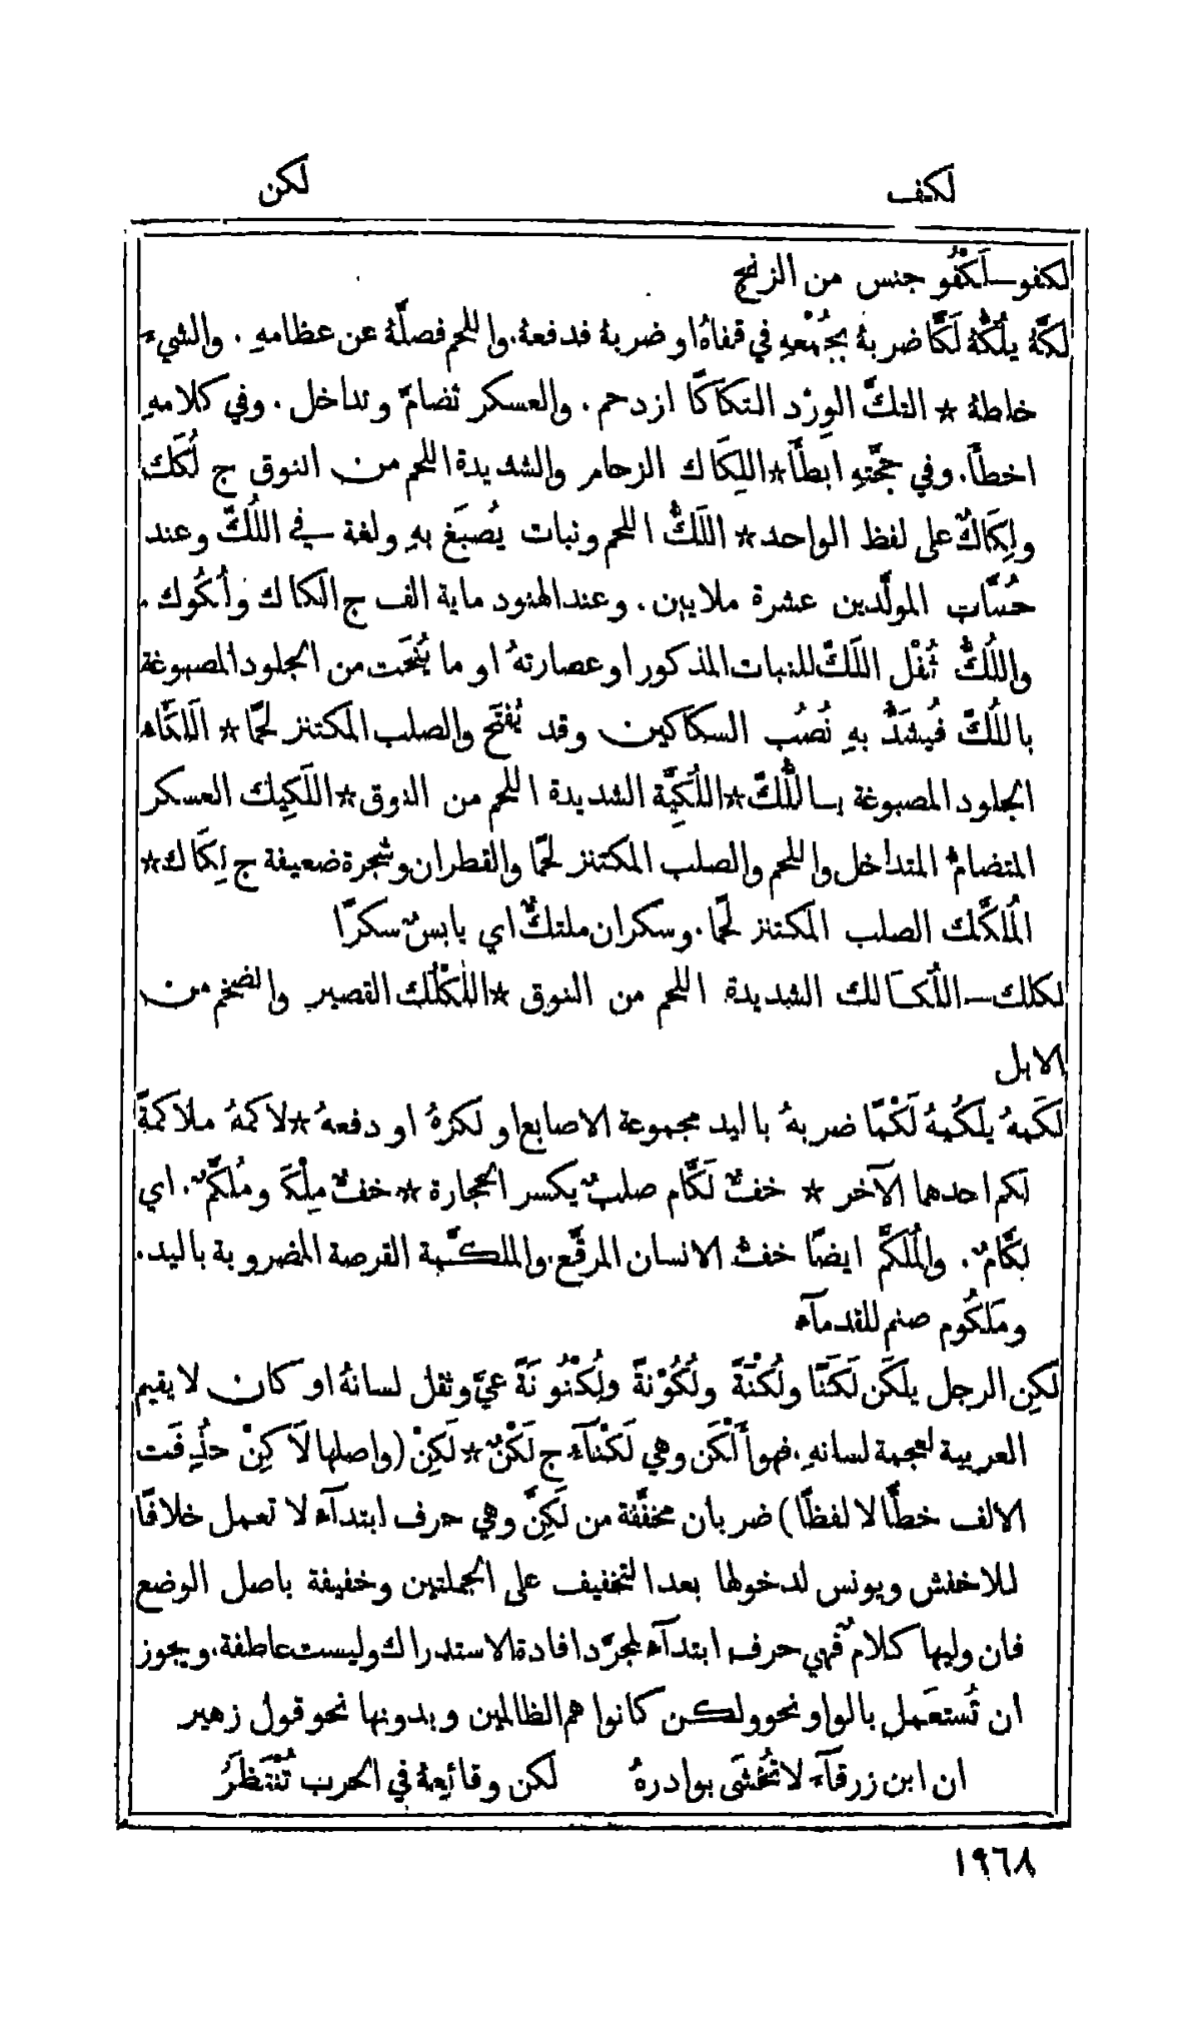 لكف
لكن
لكفو — لَكْفُو جنس من الزنج
لكَّهُ يلُكُّهُ لَكًّا ضربهُ بجُمْعهِ في قفاهُ او ضربهُ فدفعهُ. واللحم فصلّهُ عن عظامهِ. والشيءَ
خلطهُ * التكَّ الوِرْد التكاكًا ازدحم. والعسكر تضامَّ وتداخل. وفي كلامهِ
اخطأَ. وفي حجَّتهِ ابطأَ * اللِكَاك الزحام والشديدة اللحم من النوق ج لُكَك
ولِكَاكٌ على لفظ الواحد * اللَكُّ اللحم ونبات يُصبَغ بهِ ولغة في اللُكّ وعند
حُسَّاب المولَّدين عشرة ملايين. وعند الهنود ماية الف ج الكاك ولُكُوك.
واللُكُّ ثُفْل اللَكّ للنبات المذكور او عصارتهُ او ما يُنْحَت من الجلود المصبوغة
باللُكّ فيُشَدُّ بهِ نُصُب السكاكين وقد يُفتَح والصلب المكتنز لحمًا * اللَكَّاء
الجلود المصبوغة باللُكّ * اللُكِّيَّة الشديدة اللحم من النوق * اللَكِيك العسكر
المتضامُّ المتداخل واللحم والصلب المكتنز لحمًا والقطران وشجرة ضعيفة ج لِكَاك *
المُلَكَّك الصلب المكتنز لحمًا. وسكران ملتكٌّ اي يابسٌ سكرًا
لكلك — اللُكَالك الشديدة اللحم من النوق * اللُكْلُك القصير والضخم من
الابل
لَكَمهُ يلكُمهُ لَكْمًا ضربهُ باليد مجموعة الاصابع او لكزهُ او دفعهُ * لاكمهُ ملاكمةً
لكم احدهما الآخر * خفٌّ لَكَّام صلبٌ يكسر الحجارة * خفٌّ مِلْكَم ومُلَكَّمٌ. اي
لكَّامٌ. والمُلَكَّم ايضًا خفُّ الانسان المرقَّع. والملكَّمة القرصة المضروبة باليد.
ومَلكُوم صنم للقدمآء
لكِن الرجل يلكَن لَكَنًا ولُكْنَةً ولُكُوْنةً ولُكْنُونَةً عيَّ وثقل لسانهُ او كان لا يقيم
العربية لعجمة لسانهِ. فهو أَلْكَن وهي لَكْنآءُ ج لُكْنٌ * لَكِنْ (واصلها لاَكِنْ حُذِفَت
الالف خطًّا لا لفظًا) ضربان مخفَّفة من لَكِنَّ وهي حرف ابتدآءٍ لا تعمل خلافًا
للاخفش ويونس لدخولها بعد التخفيف على الجملتين وخفيفة باصل الوضع
فان وليها كلامٌ فهي حرف ابتدآء لمجرَّد افادة الاستدراك وليست عاطفة. ويجوز
ان تُستعمَل بالواو نحو ولكن كانوا هم الظالمين وبدونها نحو قول زهير
ان ابن زرقآء لا تُخشَى بوادرهُ    لكن وقائعهُ في الحرب تُنْتَظَرُ
١٩٦٨